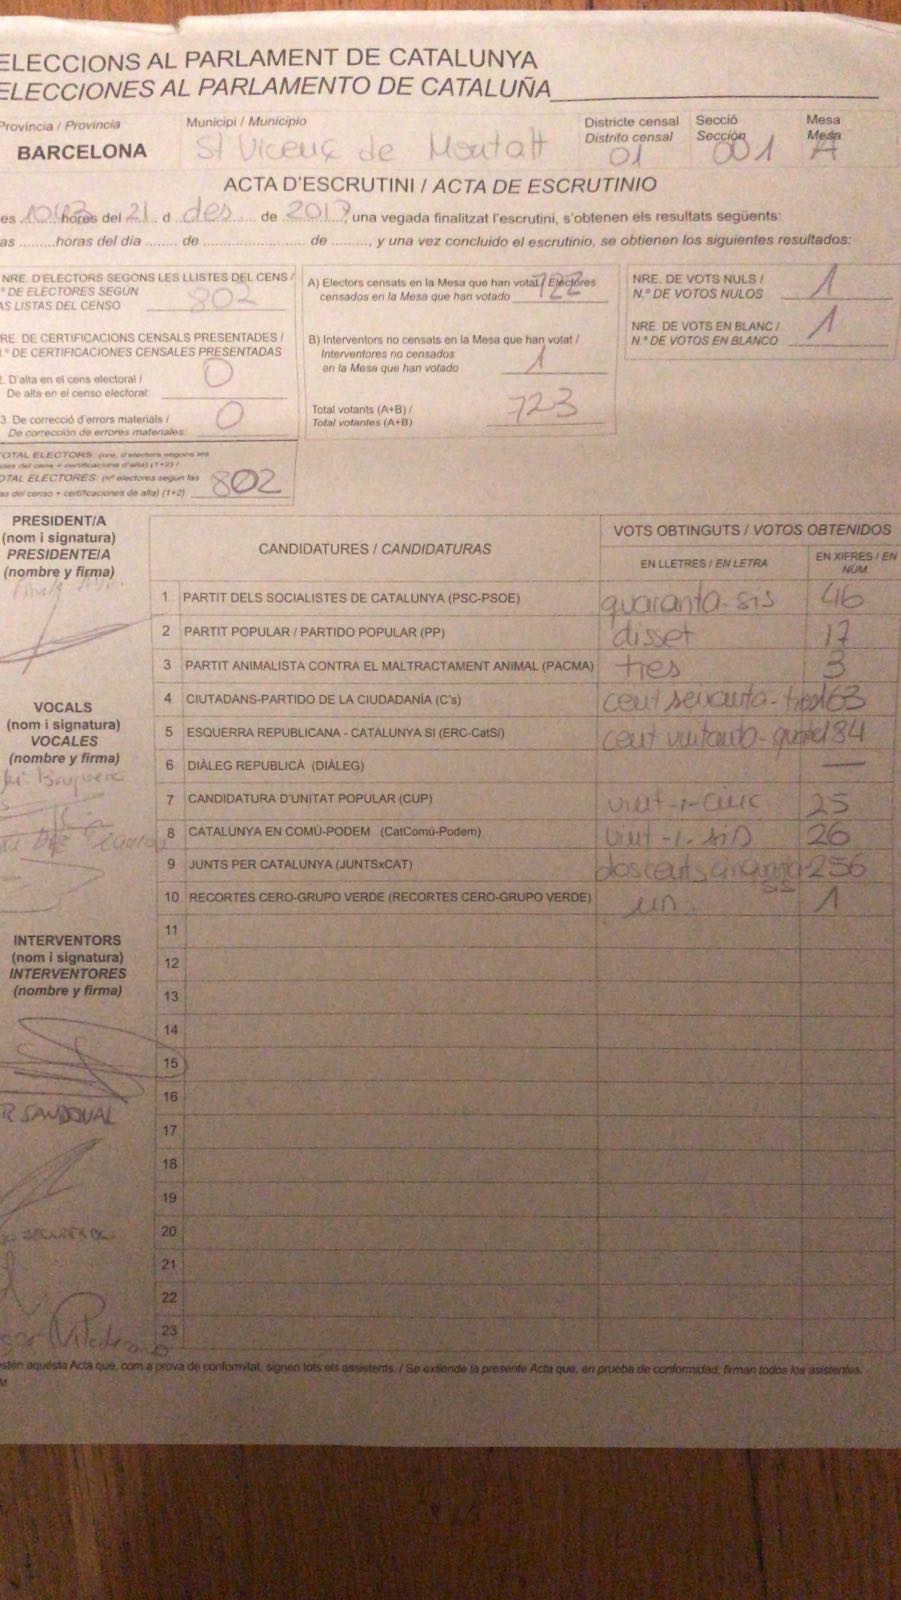 ELECCIONS AL PARLAMENT DE CATALUNYA
ELECCIONES AL PARLAMENTO DE CATALUÑA
Província / Provincia
BARCELONA
Municipi / Municipio
St Vicenç de Montalt
Districte censal
Distrito censal
01
Secció
Sección
001
Mesa
Mesa
A
ACTA D'ESCRUTINI / ACTA DE ESCRUTINIO
es hores del 21 d des de 2017, una vegada finalitzat l'escrutini, s'obtenen els resultats següents:
as horas del día de de , y una vez concluido el escrutinio, se obtienen los siguientes resultados:
NRE. D'ELECTORS SEGONS LES LLISTES DEL CENS /
º DE ELECTORES SEGÚN
AS LISTAS DEL CENSO
802
RE. DE CERTIFICACIONS CENSALS PRESENTADES /
.º DE CERTIFICACIONES CENSALES PRESENTADAS
2. D'alta en el cens electoral /
De alta en el censo electoral:
0
3. De correcció d'errors materials /
De corrección de errores materiales:
0
TOTAL ELECTORS: (nre. d'electors segons les
stes del cens + certificacions d'alta) (1+2) /
OTAL ELECTORES: (nº electores según las
as del censo + certificaciones de alta) (1+2)
802
A) Electors censats en la Mesa que han votat / Electores
censados en la Mesa que han votado
722
B) Interventors no censats en la Mesa que han votat /
Interventores no censados
en la Mesa que han votado
1
Total votants (A+B) /
Total votantes (A+B)
723
NRE. DE VOTS NULS /
N.º DE VOTOS NULOS
1
NRE. DE VOTS EN BLANC /
N.º DE VOTOS EN BLANCO
1
PRESIDENT/A
(nom i signatura)
PRESIDENTE/A
(nombre y firma)
VOCALS
(nom i signatura)
VOCALES
(nombre y firma)
INTERVENTORS
(nom i signatura)
INTERVENTORES
(nombre y firma)
SANDOVAL
CANDIDATURES / CANDIDATURAS
VOTS OBTINGUTS / VOTOS OBTENIDOS
EN LLETRES / EN LETRA
EN XIFRES / EN NÚM.
1 PARTIT DELS SOCIALISTES DE CATALUNYA (PSC-PSOE) quaranta-sis 46
2 PARTIT POPULAR / PARTIDO POPULAR (PP) disset 17
3 PARTIT ANIMALISTA CONTRA EL MALTRACTAMENT ANIMAL (PACMA) tres 3
4 CIUTADANS-PARTIDO DE LA CIUDADANÍA (C's) cent seixanta-tres 163
5 ESQUERRA REPUBLICANA - CATALUNYA SÍ (ERC-CatSí) cent vuitanta-quatre 184
6 DIÀLEG REPUBLICÀ (DIÀLEG) —
7 CANDIDATURA D'UNITAT POPULAR (CUP) vint-i-cinc 25
8 CATALUNYA EN COMÚ-PODEM (CatComú-Podem) vint-i-sis 26
9 JUNTS PER CATALUNYA (JUNTSxCAT) doscents cinquanta sis 256
10 RECORTES CERO-GRUPO VERDE (RECORTES CERO-GRUPO VERDE) un 1
11
12
13
14
15
16
17
18
19
20
21
22
23
stén aquesta Acta que, com a prova de conformitat, signen tots els assistents. / Se extiende la presente Acta que, en prueba de conformidad, firman todos los asistentes.